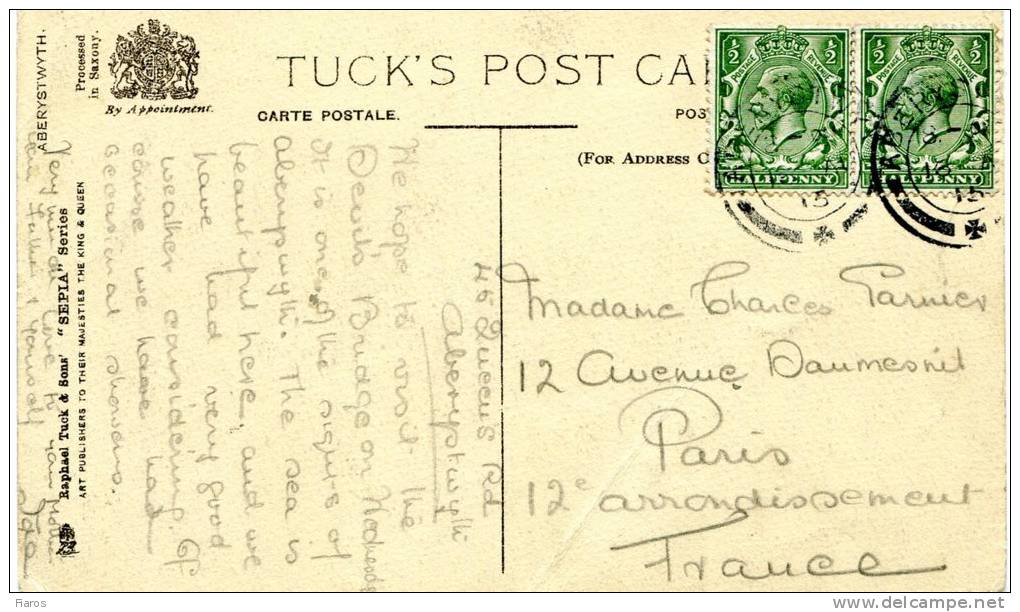 TUCK'S POST CA
CARTE POSTALE.
POS
(FOR ADDRESS O
By Appointment.
ABERYSTWYTH.
Processed
in Saxony.
Raphael Tuck & Sons' "SEPIA" Series
ART PUBLISHERS TO THEIR MAJESTIES THE KING & QUEEN
½ ½
POSTAGE REVENUE
LFPENNY
15
½ ½
POSTAGE REVENUE
LFPENNY
15
45 Queens Rd
Aberystwyth
We hope to visit the
Devil's Bridge on Wednesday
It is one of the sights of
aberystwyth. The sea is
beautiful here, and we
have had very good
weather considering. Of
course we have had
occasional showers.
Very much love to your Mother
and Father & yourself
Madame Charles Garnier
12 Avenue Daumesnil
Paris
12e arrondissement
France
faros
delcampe.net